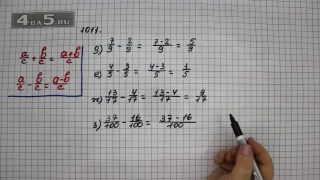 4DA5.RU
1011.
a/c + b/c = a+b/c
a/c - b/c = a-b/c
д) 7/9 - 2/9 = 7-2/9 = 5/9
е) 4/5 - 3/5 = 4-3/5 = 1/5
ж) 13/17 - 4/17 = 13-4/17 = 9/17
з) 37/100 - 16/100 = 37-16/100